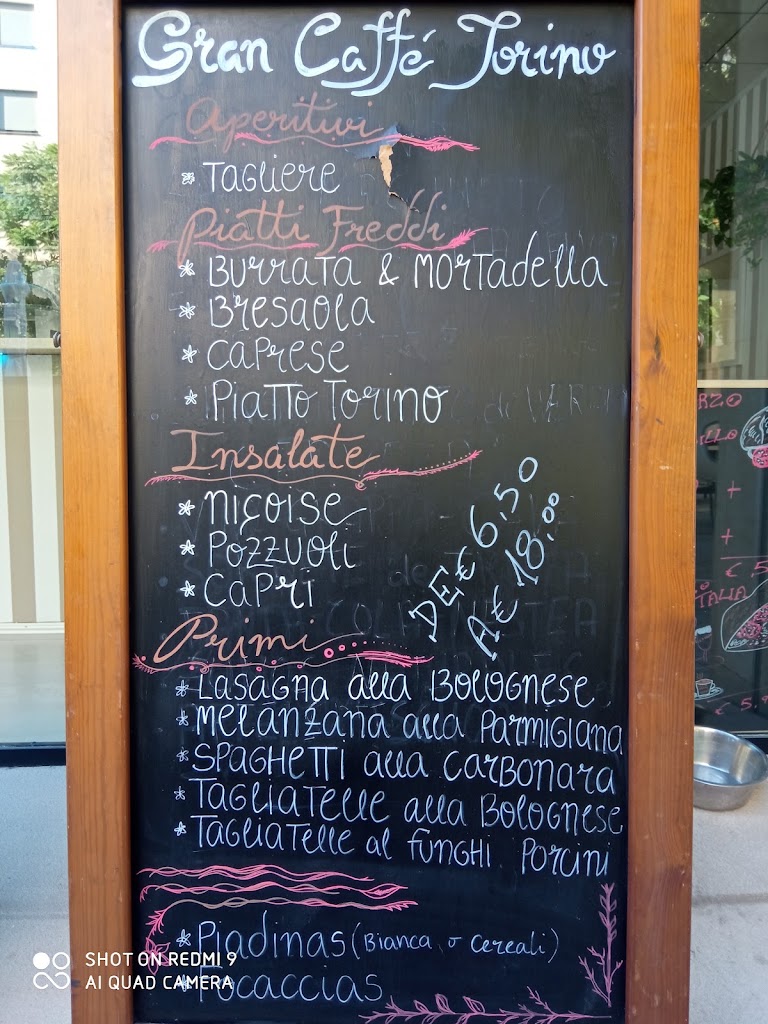 Gran Caffé Torino
Aperitivi
* Tagliere
Piatti Freddi
* Burrata & Mortadella
* Bresaola
* Caprese
* Piatto Torino
Insalate
* Niçoise
* Pozzuoli
* Capri
DE € 6,50
A € 18,00
Primi
* Lasagna alla Bolognese
* Melanzana alla Parmigiana
* Spaghetti alla Carbonara
* Tagliatelle alla Bolognese
* Tagliatelle al funghi Porcini
* Piadinas (Bianca o Cereali)
* Focaccias
SHOT ON REDMI 9
AI QUAD CAMERA